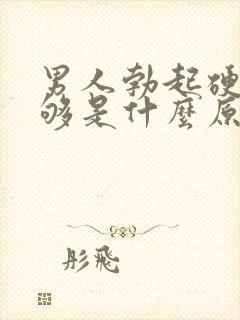 男人勃起硬
够是什麼原
彤飛